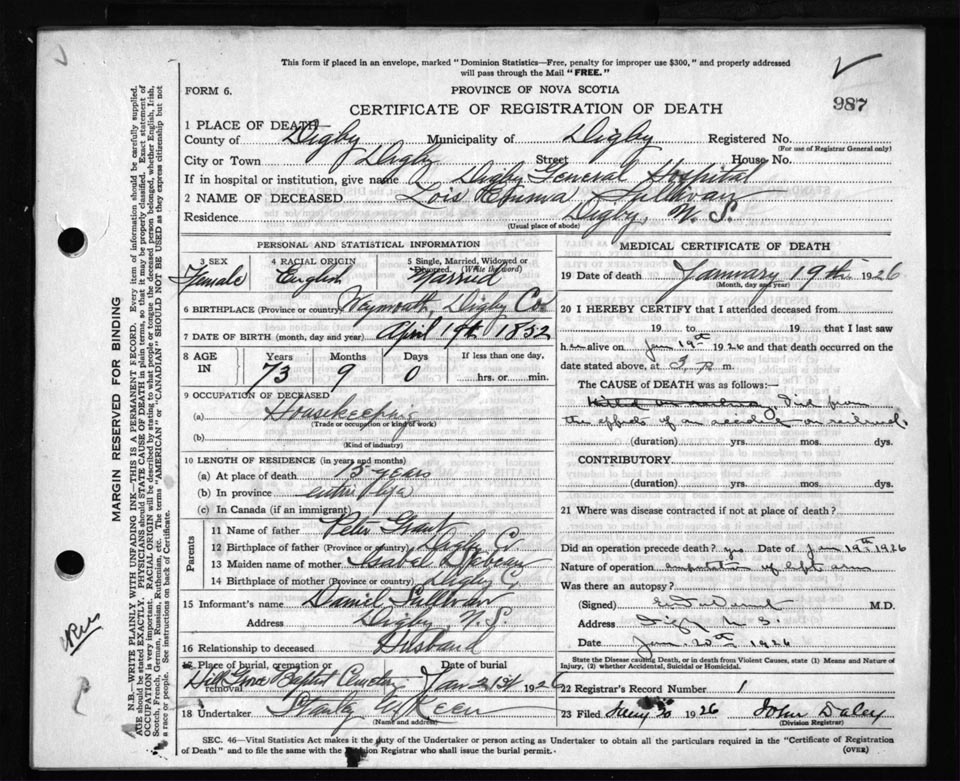 This form if placed in an envelope, marked "Dominion Statistics—Free, penalty for improper use $300," and properly addressed
will pass through the Mail "FREE."
FORM 6.
PROVINCE OF NOVA SCOTIA
987
CERTIFICATE OF REGISTRATION OF DEATH
1 PLACE OF DEATH—
County of Digby Municipality of Digby Registered No.
(For use of Registrar General only)
City or Town Digby Street House No.
If in hospital or institution, give name Digby General Hospital
2 NAME OF DECEASED Lois Emma Sullivan
Residence Digby, N. S.
(Usual place of abode)
PERSONAL AND STATISTICAL INFORMATION
3 SEX 4 RACIAL ORIGIN 5 Single, Married, Widowed or Divorced. (Write the word)
Female English Married
6 BIRTHPLACE (Province or country) Weymouth, Digby Co.
7 DATE OF BIRTH (month, day and year) April 19th 1852
8 AGE IN Years Months Days If less than one day,
73 9 0 hrs. or min.
9 OCCUPATION OF DECEASED
(a) Housekeeping
(Trade or occupation or kind of work)
(b)
(Kind of industry)
10 LENGTH OF RESIDENCE (in years and months)
(a) At place of death 15 years
(b) In province entire life
(c) In Canada (if an immigrant)
Parents
11 Name of father Peter Grant
12 Birthplace of father (Province or country) Digby Co
13 Maiden name of mother Isabel
14 Birthplace of mother (Province or country) Digby C.
15 Informant's name Daniel Sullivan
Address Digby N. S.
16 Relationship to deceased Husband
17 Place of burial, cremation or removal Date of burial
Hill Grove Baptist Cemetery Jan 21st 1926
18 Undertaker Stanly
(Name and address)
MEDICAL CERTIFICATE OF DEATH
19 Date of death January 19th 1926
(Month, day and year)
20 I HEREBY CERTIFY that I attended deceased from
19 to 19 that I last saw
her alive on Jan 19th 1926 and that death occurred on the
date stated above, at 3 p m.
The CAUSE OF DEATH was as follows:—
Died from
the effects of an accident on railroad.
(duration) yrs. mos. dys.
CONTRIBUTORY.
(duration) yrs. mos. dys.
21 Where was disease contracted if not at place of death?
Did an operation precede death? yes Date of Jan 19th 1926
Nature of operation amputation of left arm
Was there an autopsy?
(Signed) M.D.
Address Digby N. S.
Date Jan 20th 1926
State the Disease causing Death, or in death from Violent Causes, state (1) Means and Nature of
Injury, (2) whether Accidental, Suicidal or Homicidal.
22 Registrar's Record Number 1
23 Filed 20 1926 John Daley
(Division Registrar)
SEC. 46—Vital Statistics Act makes it the duty of the Undertaker or person acting as Undertaker to obtain all the particulars required in the "Certificate of Registration
of Death" and to file the same with the Division Registrar who shall issue the burial permit.
(OVER)
MARGIN RESERVED FOR BINDING
N.B.—WRITE PLAINLY WITH UNFADING INK—THIS IS A PERMANENT RECORD. Every item of information should be carefully supplied.
AGE should be stated EXACTLY. PHYSICIANS should STATE CAUSE OF DEATH in plain terms, so that it may be properly classified. Exact statement of
OCCUPATION is very important. RACIAL ORIGIN will be described by stating to what people or tongue the deceased person belonged, whether English, Irish,
Scotch, French, German, Russian, Ruthenian, etc. The terms "AMERICAN" or "CANADIAN" SHOULD NOT BE USED as they express citizenship but not
a race or people. See instructions on back of Certificate.